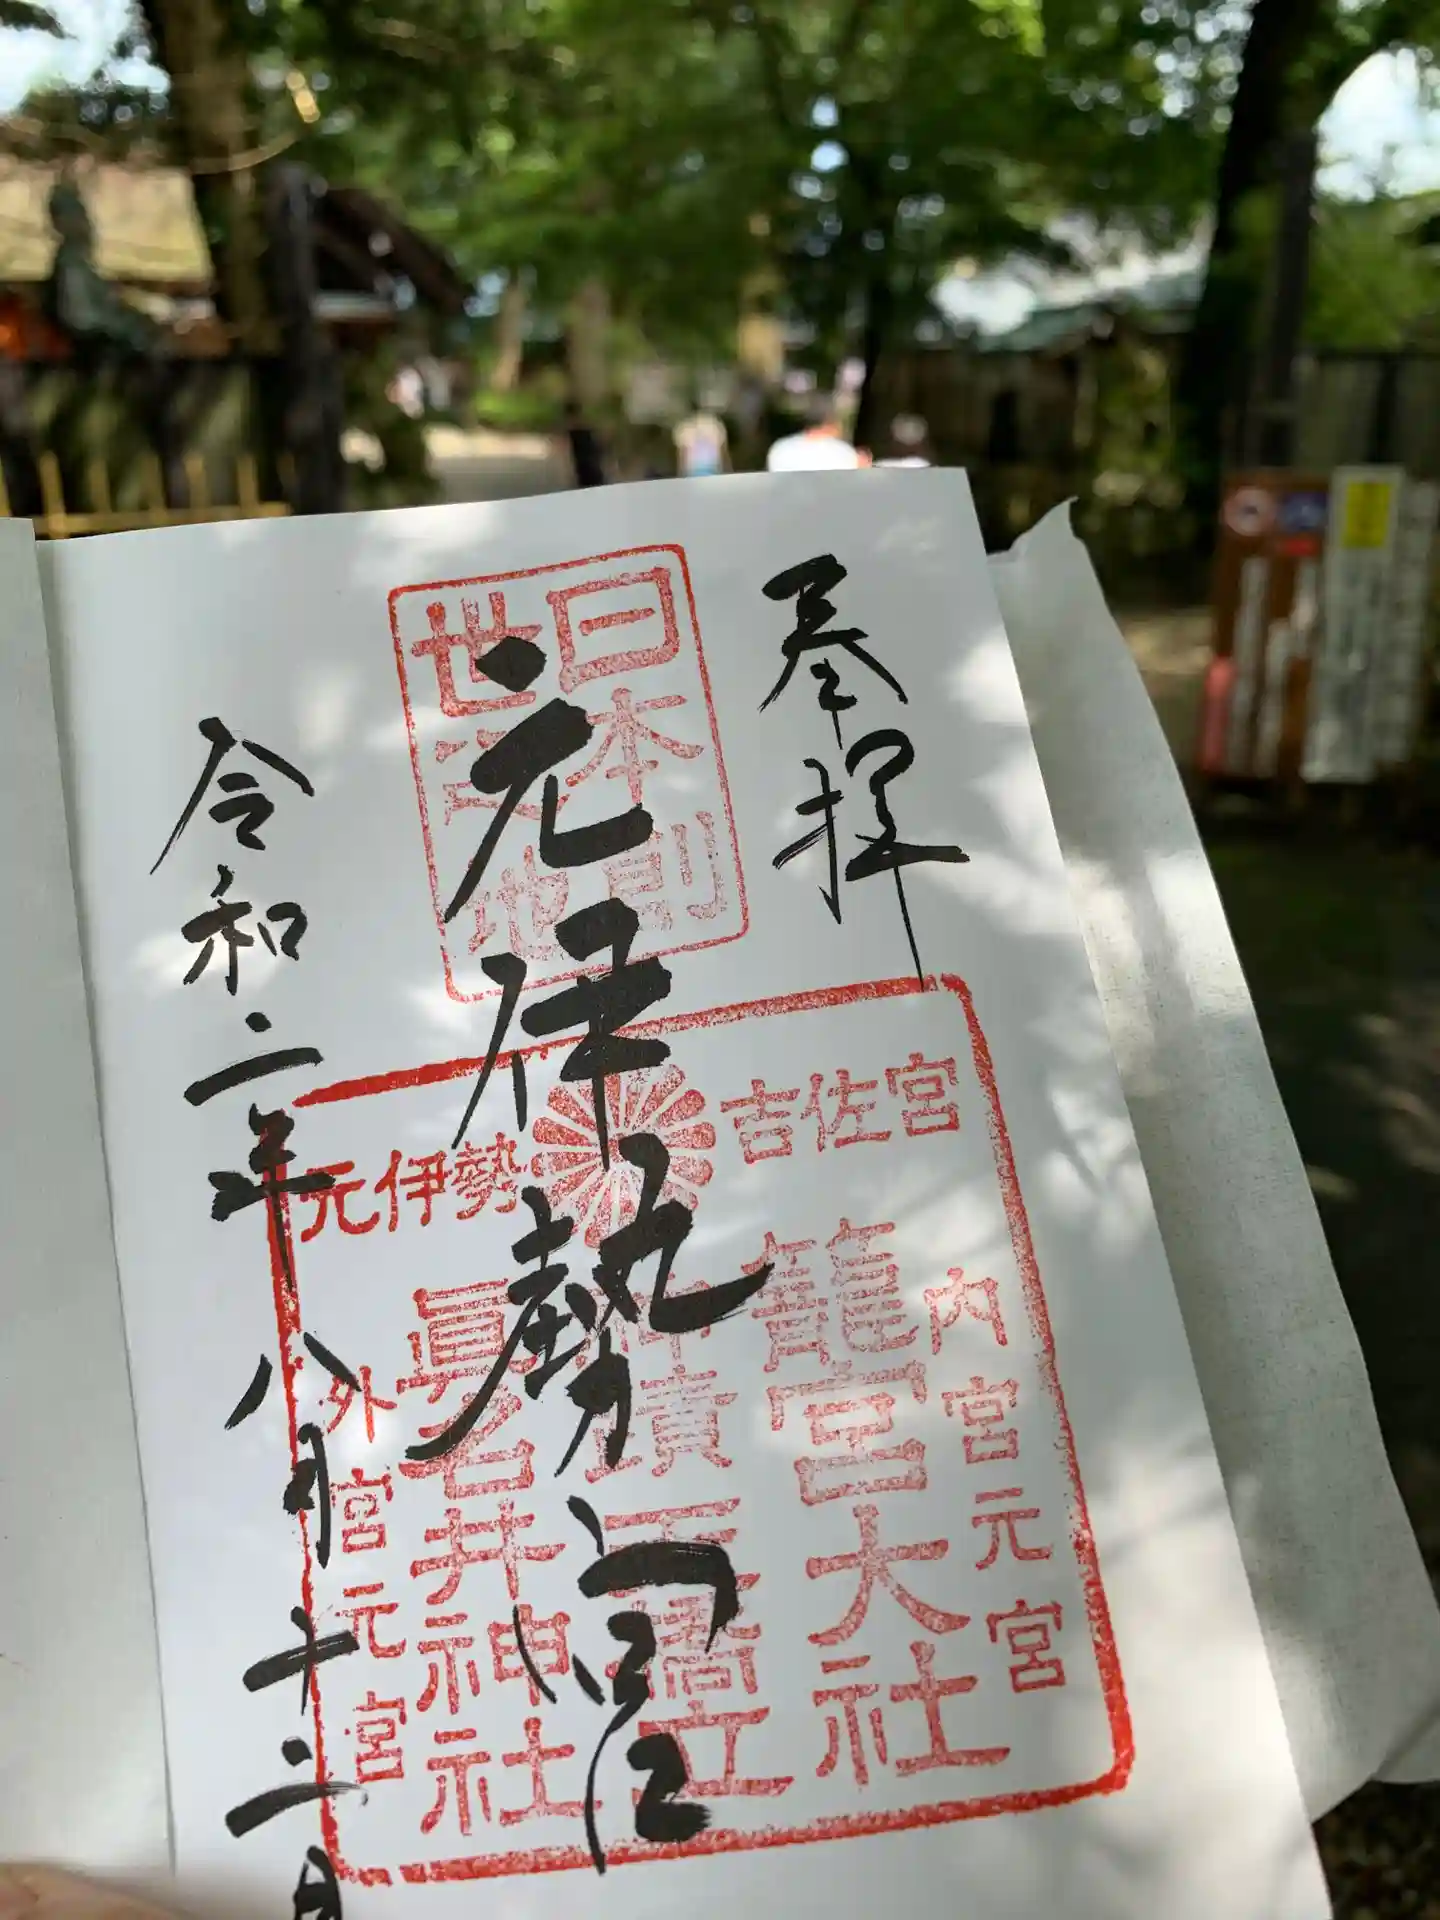 奉拝
日本剞
世之地
元伊勢宮
吉佐宮
元伊勢
内宮元宮
籠宮大社
神蹟 天橋立
眞名井神社
外宮元宮
令和二年八月十二日